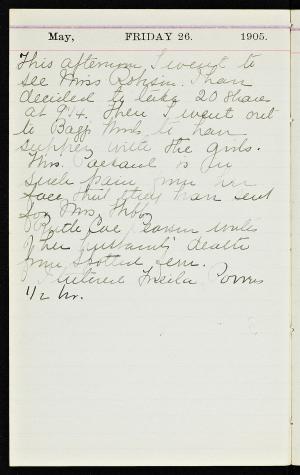 May, FRIDAY 26. 1905.
This afternoon I went to
see Miss Robson. I have
decided to take 20 shares
at 94. Then I went out
to to have
supper with the girls.
Mrs. is in
such pain from her
face that they have sent
for Mrs.
Ruth Coe writes
of her husband's death
from spotted fever.
I tutored
1/2 hr.